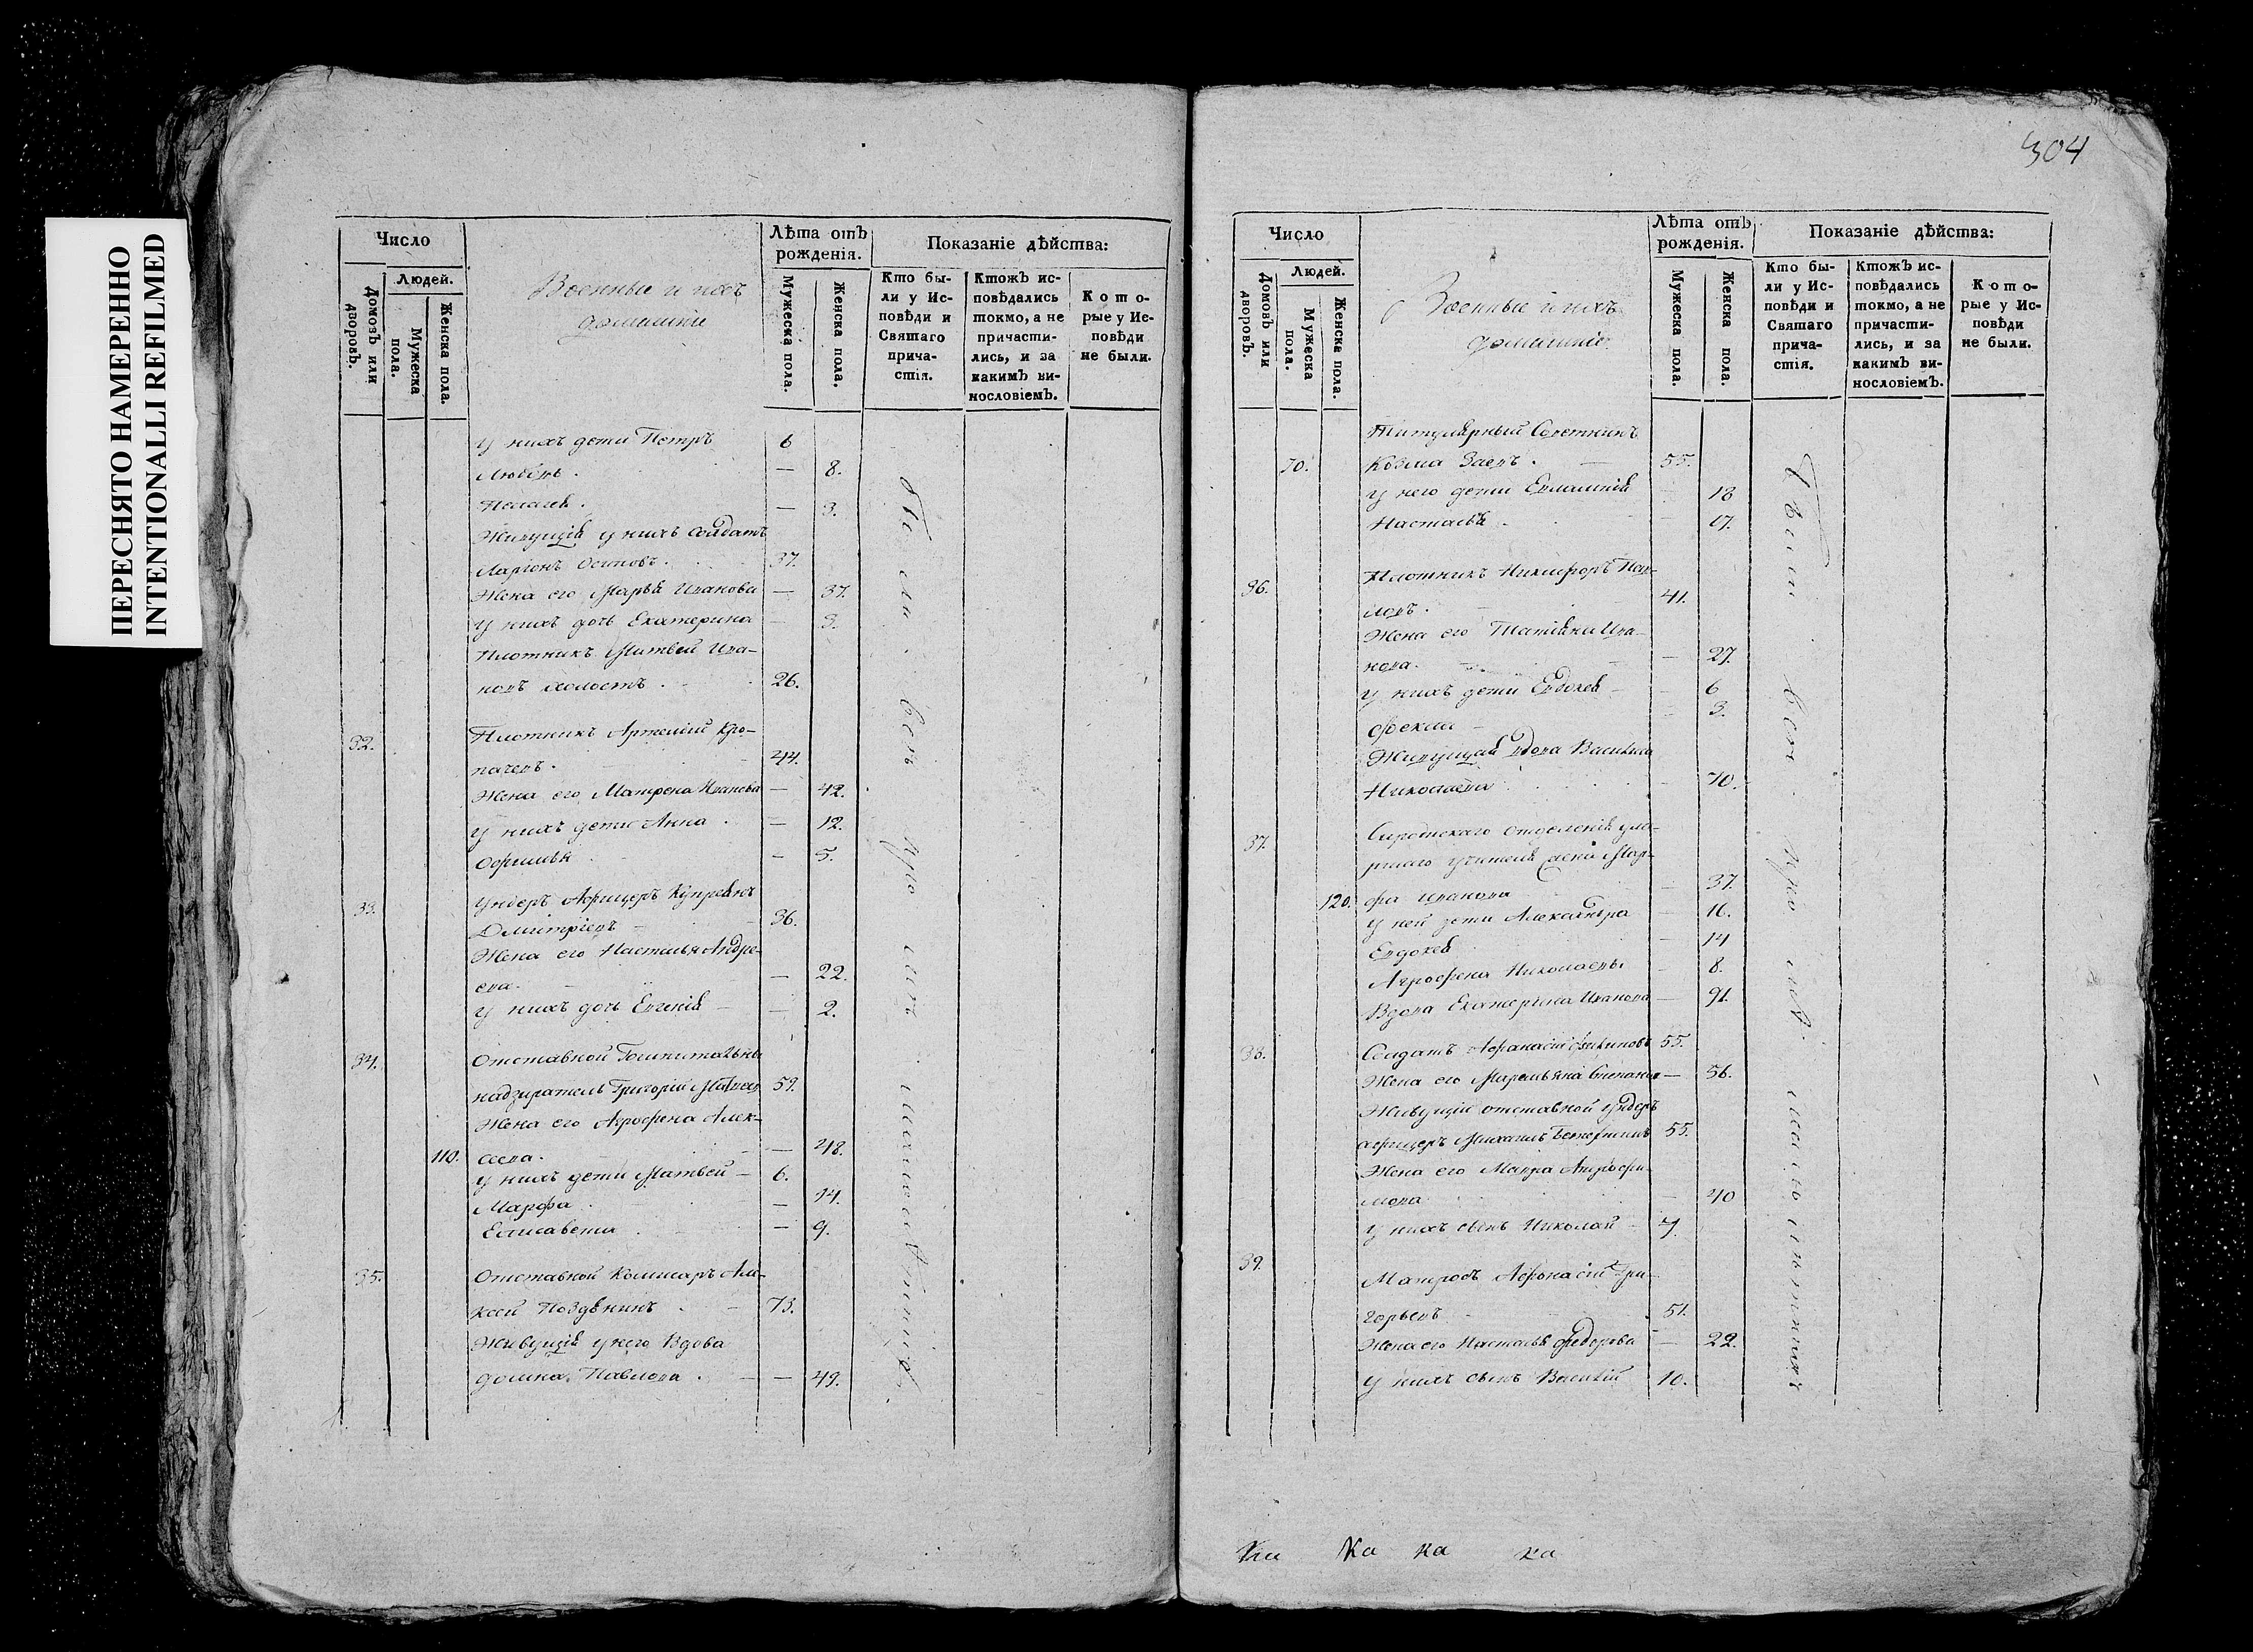 ПЕРЕСНЯТО НАМЕРЕННО
INTENTIONALLI REFILMED
304
Число
Людей.
Домовъ или дворовъ.
Мужеска пола.
Женска пола.
Военные и ихъ
домашніе
Лѣта отъ рожденія.
Мужеска пола.
Женска пола.
Показаніе дѣйства:
Кто были у Исповѣди и Святаго причастія.
Ктожъ исповѣдались токмо, а не причастились, и за какимъ винословіемъ.
Которые у Исповѣди не были.
у нихъ дети Петръ 6
Любовь — 8.
Пелагея — 3.
Живущія у нихъ солдатъ
Ларіонъ Осиповъ 37.
Жена его Марья Иванова — 37.
у нихъ дочь Екатерина — 3.
Плотникъ Матвей Ива-
новъ холостъ 26.
32. Плотникъ Артемій Кро-
пачевъ 44.
Жена его Матрена Иванова — 42.
у нихъ дети Анна — 12.
Офимья — 5.
33. Ундеръ Афицеръ Купреянъ
Дмитріевъ 36.
Жена его Настасья Андре-
ева — 22.
у нихъ дочь Евгенія — 2.
34. Отставной Гошпитальны
надзиратель Григорій 59.
Жена его Агрофена Алек-
110. сеева — 48.
у нихъ дети Матвей — 6.
Марфа — 14.
Елисавета — 9.
35. Отставной Комисаръ Але-
ксей Поздѣнинъ 73.
Живущія у него Вдова
Домна Павлова — 49.
Число
Людей.
Домовъ или дворовъ.
Мужеска пола.
Женска пола.
Военные и ихъ
домашніе
Лѣта отъ рожденія.
Мужеска пола.
Женска пола.
Показаніе дѣйства:
Кто были у Исповѣди и Святаго причастія.
Ктожъ исповѣдались токмо, а не причастились, и за какимъ винословіемъ.
Которые у Исповѣди не были.
Титулярный Советникъ
70. Козма Заевъ 55.
у него дети Евлампія 18
Настасья — 17.
36. Плотникъ Никифоръ Пав-
ловъ 41.
Жена его Татіяна Ива-
нова — 27.
у нихъ дети Евдокея — 6
Фекла — 3.
Живущая вдова Василиса
Николаева — 70.
37. Сиротскаго отделенія
учителя жена Мар-
120. фа Иванова — 37.
у ней дети Александра — 16.
Евдокея — 14
Агрофена Николаевы — 8.
Вдова Екатерина Иванова — 91.
38. Солдатъ Афанасій 55.
Жена его Маремьяна Степанова — 56.
Живущіе отставной ундеръ
афицеръ Михаилъ 55.
Жена его Мавра
мова — 40
у нихъ сынъ Николай — 7.
39. Матросъ Афонасій Гри-
горьевъ 51.
Жена его Настасья Федорова — 22.
у нихъ сынъ Василій 10.
Ка Ка ка ка